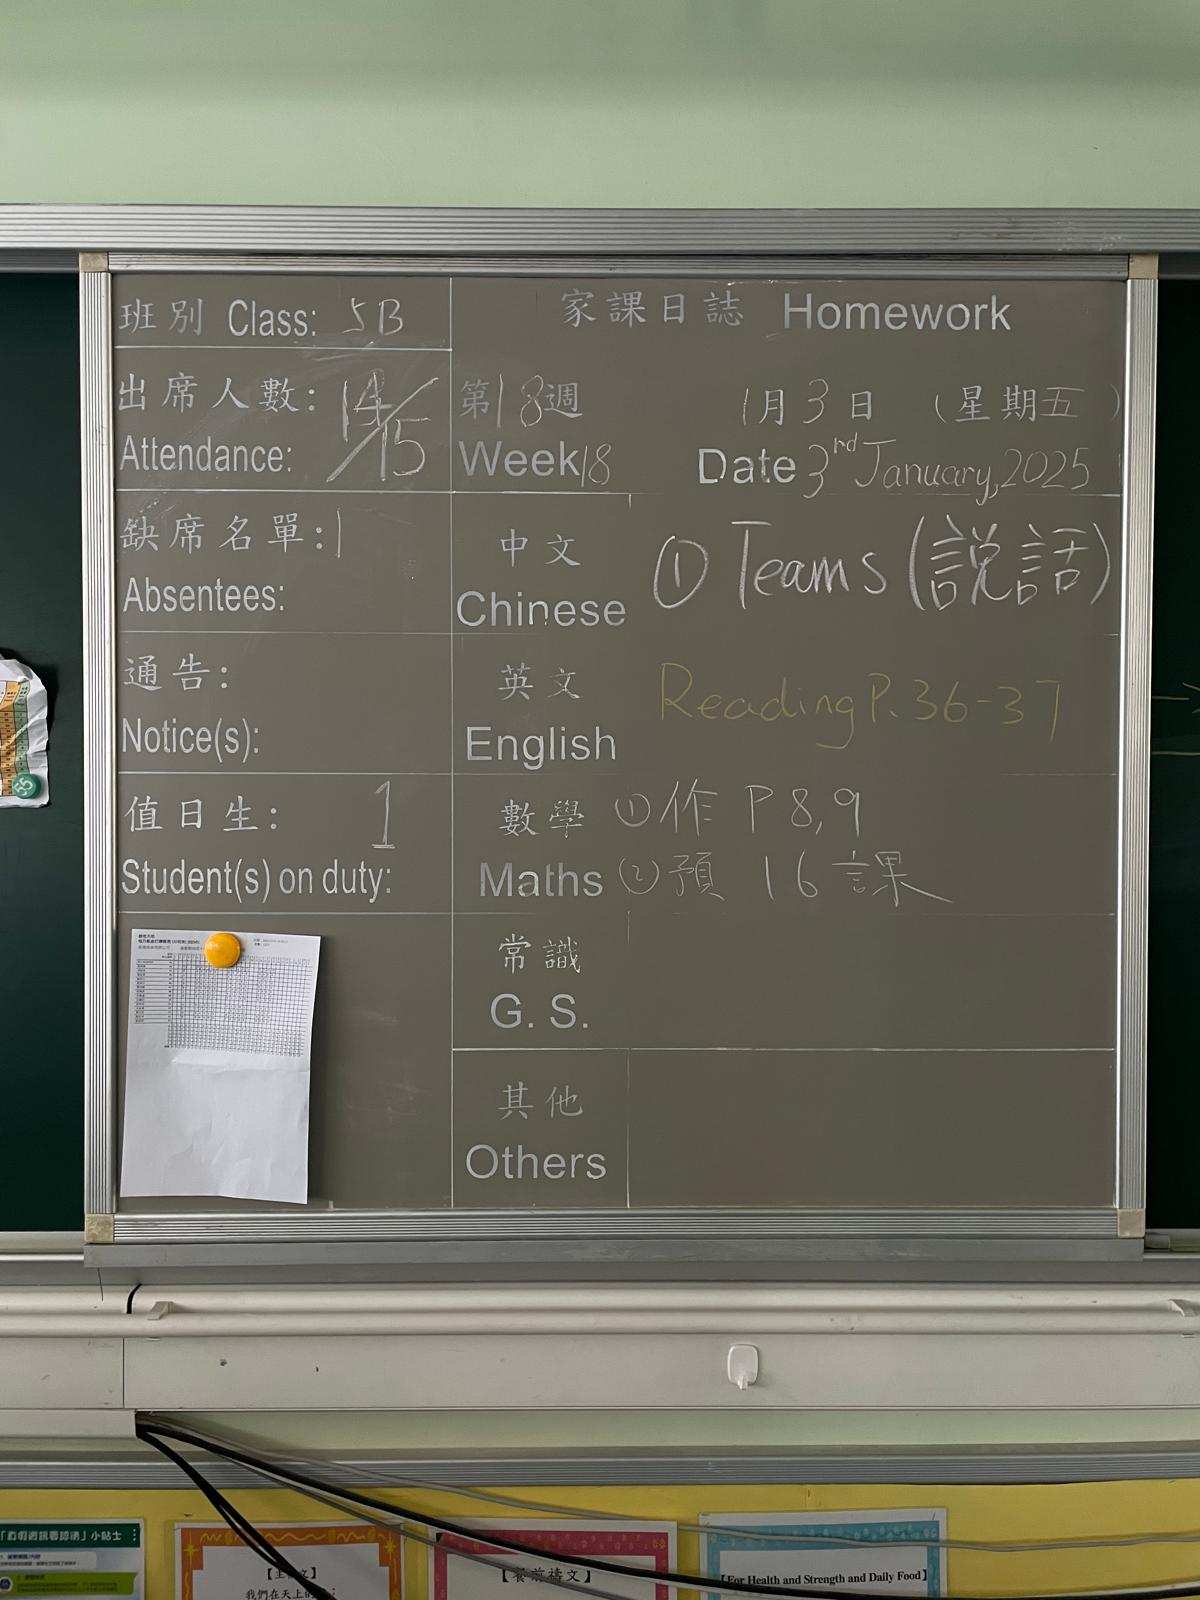 班別 Class: 5B
家課日誌 Homework
出席人數: 14/15
Attendance:
第18週
Week 18
1月3日 (星期五)
Date 3rd January, 2025
缺席名單: 1
Absentees:
中文
Chinese
① Teams (説話)
通告:
Notice(s):
英文
English
Reading P. 36-37
值日生: 1
Student(s) on duty:
數學
Maths
① 作 P 8,9
② 預 16 課
常識
G. S.
其他
Others
55
小貼士
我們在天上的
【For Health and Strength and Daily Food】